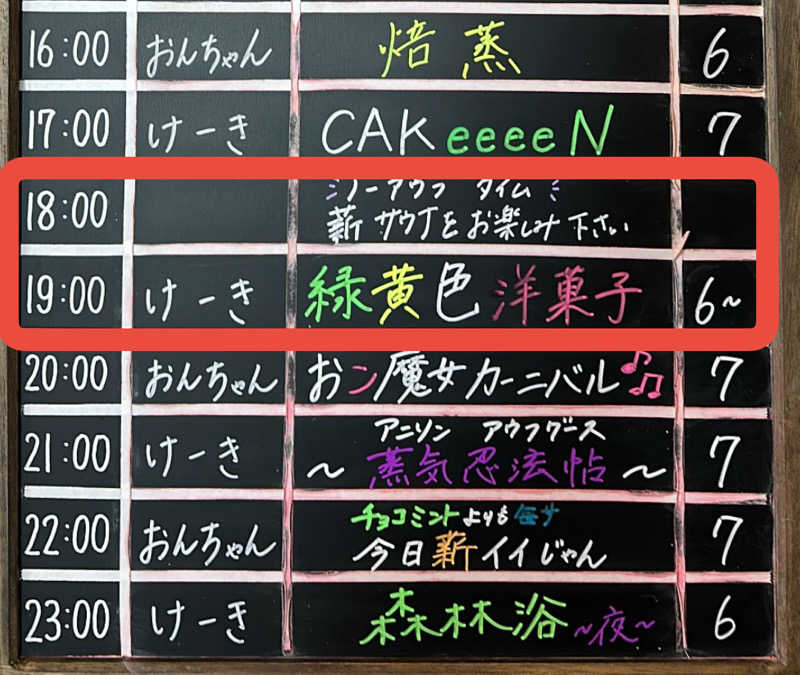 16:00 おんちゃん 焙 蒸 6
17:00 けーき CAKeeeeN 7
18:00 ノーアウフ タイム
薪サウナをお楽しみ下さい
19:00 けーき 緑黄色洋菓子 6~
20:00 おんちゃん おン魔女カーニバル♫ 7
アニソン アウフグース
21:00 けーき ～蒸気忍法帖～ 7
チョコミントよりも毎サ
22:00 おんちゃん 今日薪イイじゃん 7
23:00 けーき 森林浴~夜~ 6